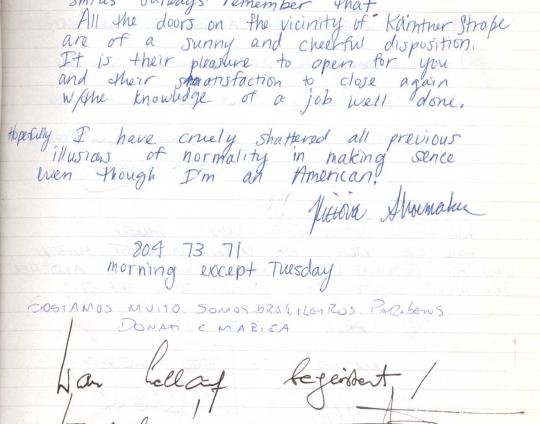 always remember that
All the doors on the vicinity of Kärntner Straße
are of a sunny and cheerful disposition.
It is their pleasure to open for you
and their satisfaction to close again
w/the knowledge of a job well done.
Hopefully I have cruely shattered all previous
illusions of normality in making sence
even though I'm an American.
Shoemaker
804 73 71
morning except Tuesday
GOSTAMOS MUITO. SOMOS BRASILEIROS. PARABENS
DONATI E MARIZA
War hellauf begeistert!